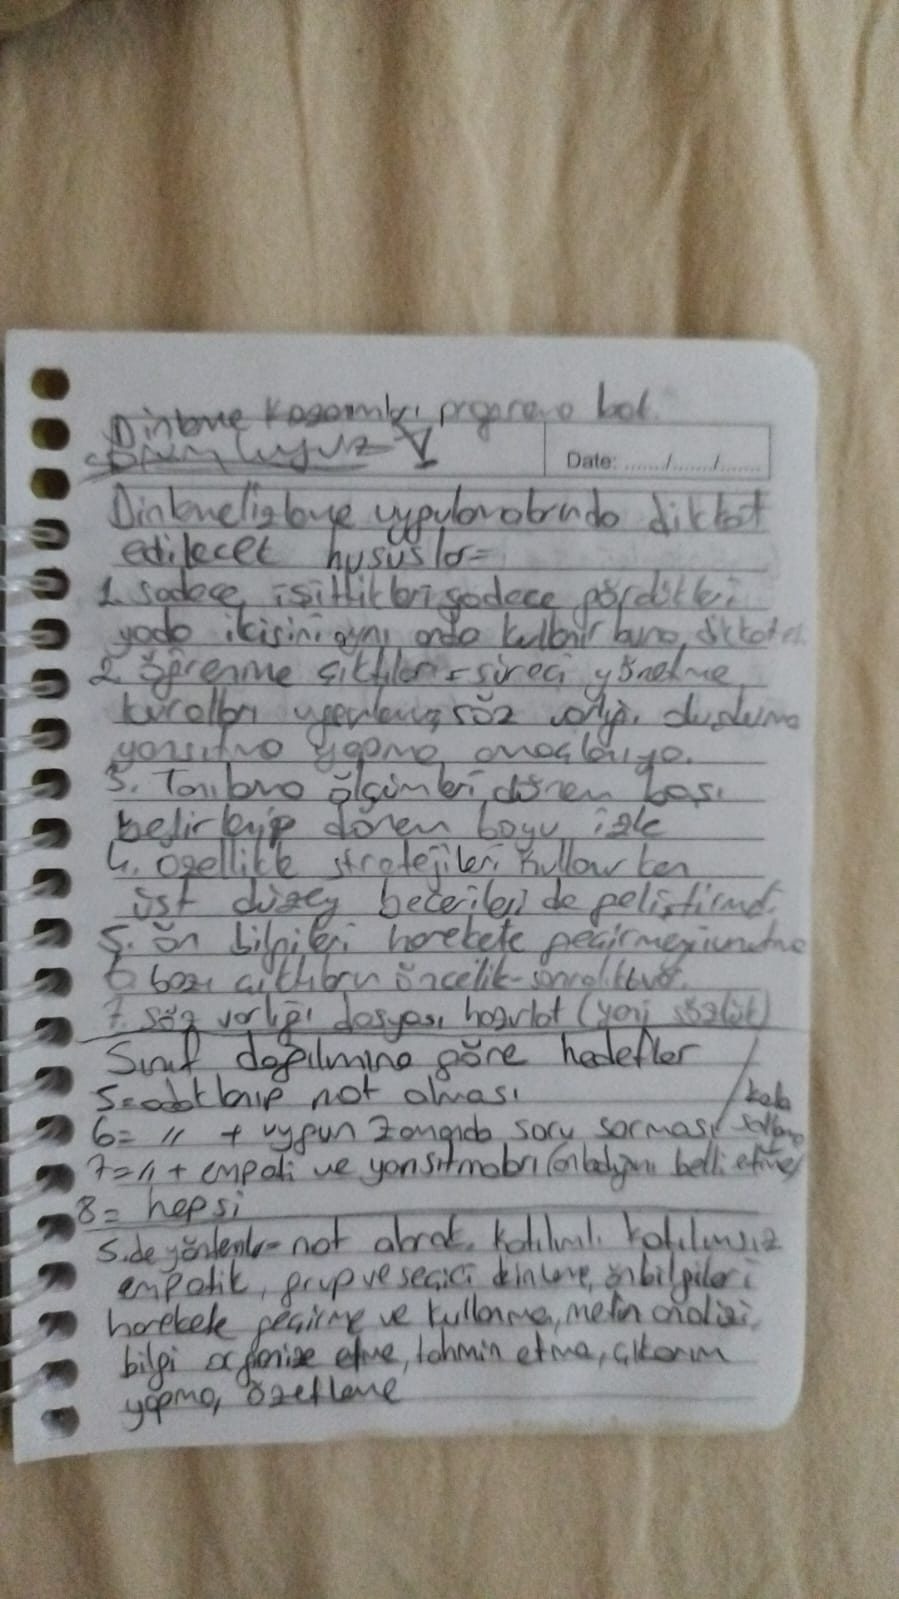 Dinleme kazanımları programa bak.
Date: ....../....../......
Dinleme/izleme uygulamalarında dikkat
edilecek hususlar=
1. Sadece işittikleri sadece gördükleri
yada ikisini aynı anda kullanır buna dikkat et.
2. Öğrenme çıktıları = süreci yönetme,
kuralları uygulama, söz varlığı
yansıtma yapma amaçlanıyo.
3. Tanılama ölçümleri dönem başı
belirleyip dönem boyu izle
4. Özellikle stratejileri kullanırken
üst düzey becerileri de geliştirmeli.
5. Ön bilgileri harekete geçirmeyi unutma
6. bazı çıktıların öncelik-sonralık var.
7. söz varlığı dosyası hazırlat (yani sözlük)
Sınıf dağılımına göre hedefler
5= odaklanıp not alması
6= " + uygun zamanda soru sorması
kafa
sallama
7= " + empati ve yansıtmaları (anladığını belli etme)
8= hepsi
5.de yöntemler= not alarak, katılımlı, katılımsız
empatik, grup ve seçici dinleme, önbilgileri
harekete geçirme ve kullanma, metin analizi,
bilgi organize etme, tahmin etme, çıkarım
yapma, özetleme